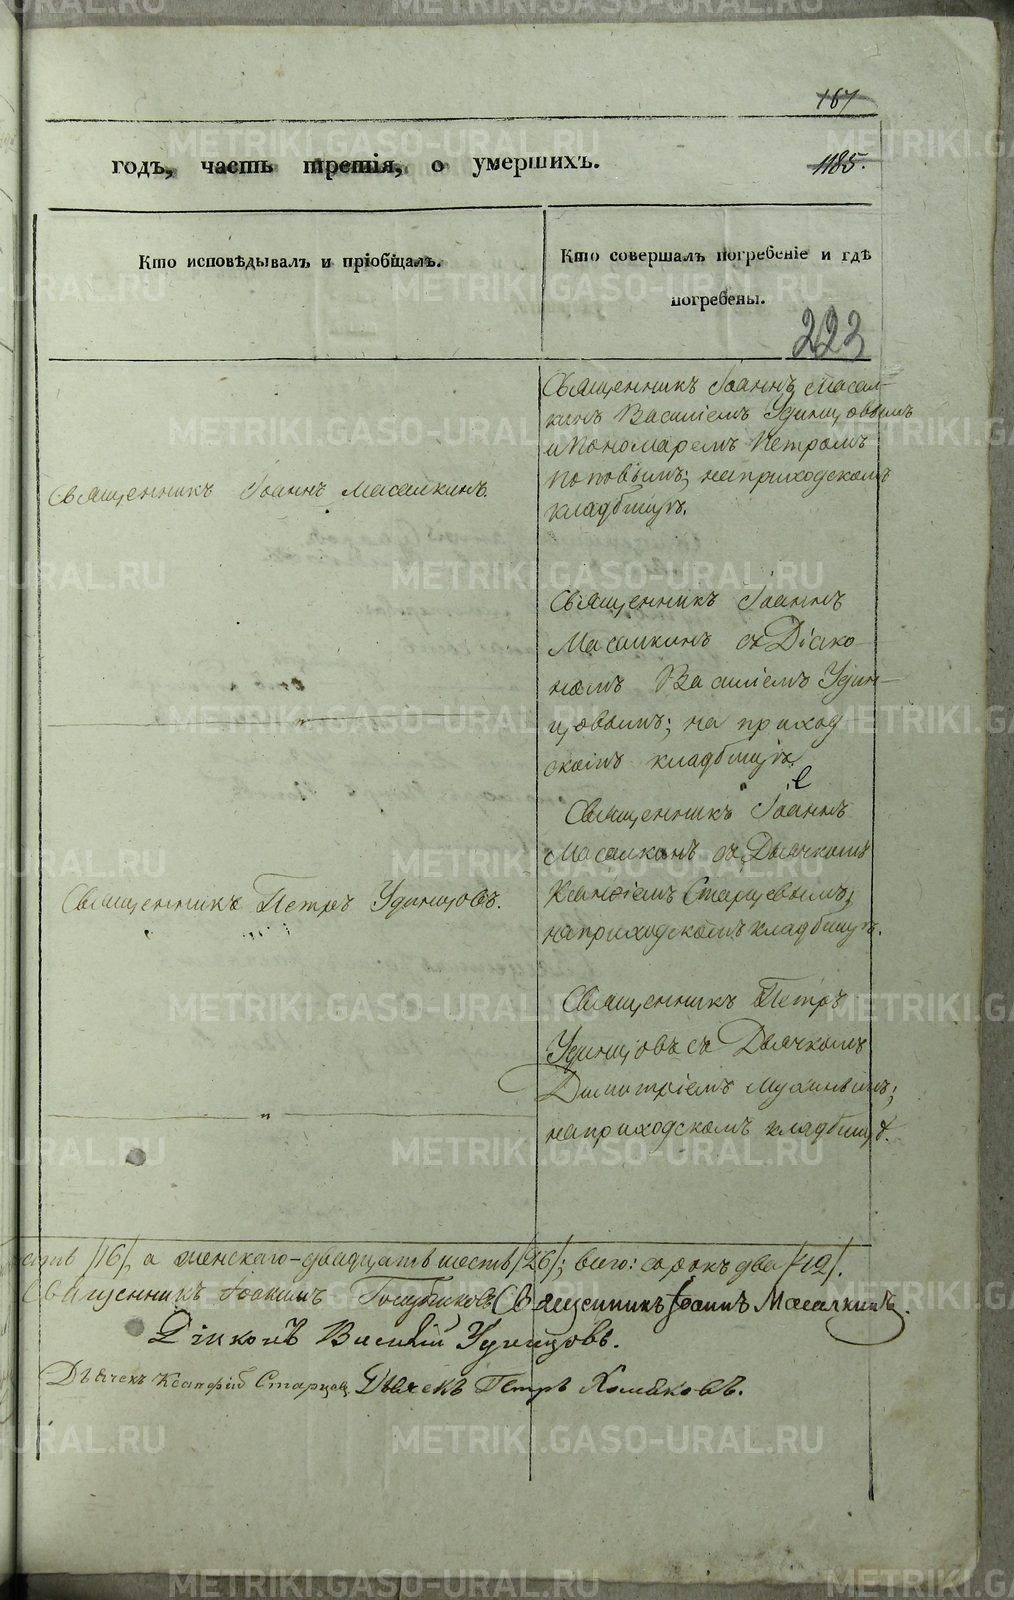 167
годъ, часть третія, о умершихъ.
1185.
Кто исповѣдывалъ и пріобщалъ.
Кто совершалъ погребеніе и гдѣ
погребены.
223
Священникъ Іоаннъ Масал-
кинъ Василіемъ Удинцовымъ
и Пономаремъ Петромъ
Поповымъ; на приходскомъ
кладбищѣ.
Священникъ Іоаннъ Масалкинъ.
Священникъ Іоаннъ
Масалкинъ съ Діако-
номъ Василіемъ Удин-
цовымъ; на приход
скомъ кладбищѣ.
Священникъ Іоаннъ
Масалкинъ съ Дьячкомъ
Старцевымъ;
на приходскомъ кладбищѣ.
Священникъ Петръ Удинцовъ.
Священникъ Петръ
Удинцовъ съ Дьячкомъ
Димитріемъ
на приходскомъ кладбищѣ.
/16/, а женскаго - двадцать шесть /26/; всего: сорокъ два /42/.
Священникъ Іоакимъ Священникъ Іоаннъ Масалкинъ.
Діаконъ Василій Удинцовъ.
Дьячекъ Старцовъ Дьячекъ Петръ Хомяковъ.
METRIKI.GASO-URAL.RU